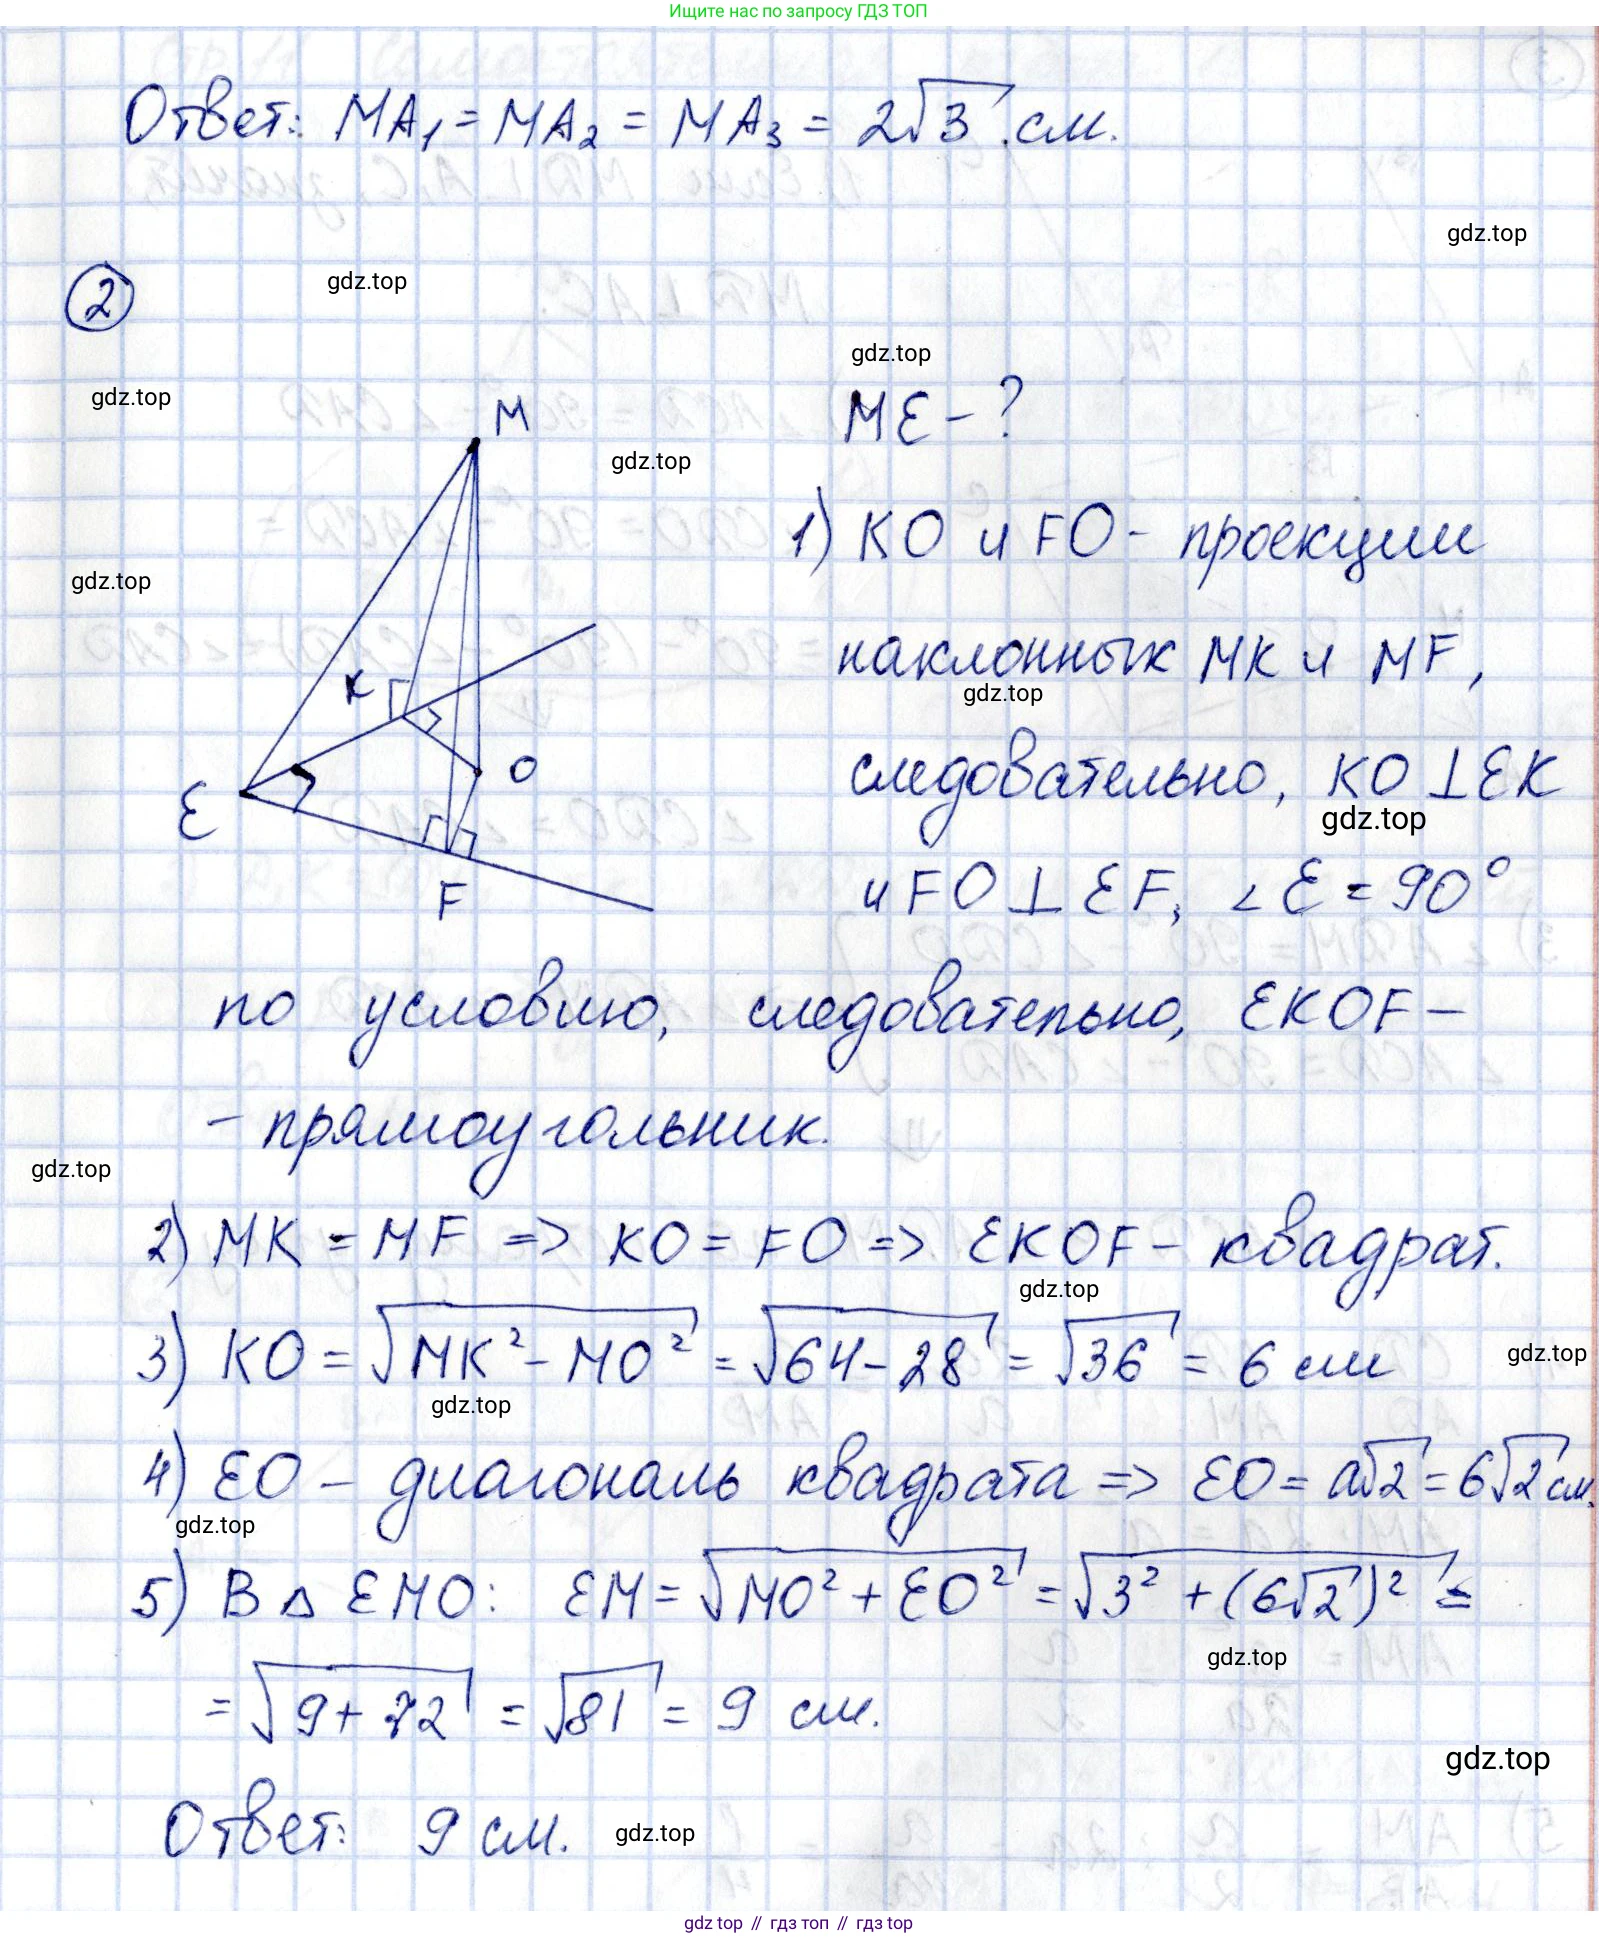 Ищите нас по запросу ГДЗ ТОП
Ответ: MA₁ = MA₂ = MA₃ = 2√3 см.
gdz.top
②
gdz.top
gdz.top
gdz.top
M
ME - ?
gdz.top
1) KO и FO - проекции
gdz.top
наклонных MK и MF,
gdz.top
K
O
E
F
следовательно, KO ⊥ EK
gdz.top
и FO ⊥ EF, ∠E = 90°
по условию, следовательно, EKOF -
- прямоугольник.
gdz.top
2) MK = MF => KO = FO => EKOF - квадрат.
gdz.top
3) KO = √(MK² - MO²) = √(64 - 28) = √36 = 6 см
gdz.top
gdz.top
4) EO - диагональ квадрата => EO = a√2 = 6√2 см.
gdz.top
5) В △ EMO: EM = √(MO² + EO²) = √(3² + (6√2)²) =
gdz.top
= √(9 + 72) = √81 = 9 см.
gdz.top
Ответ: 9 см.
gdz.top
gdz top // гдз топ // гдз top